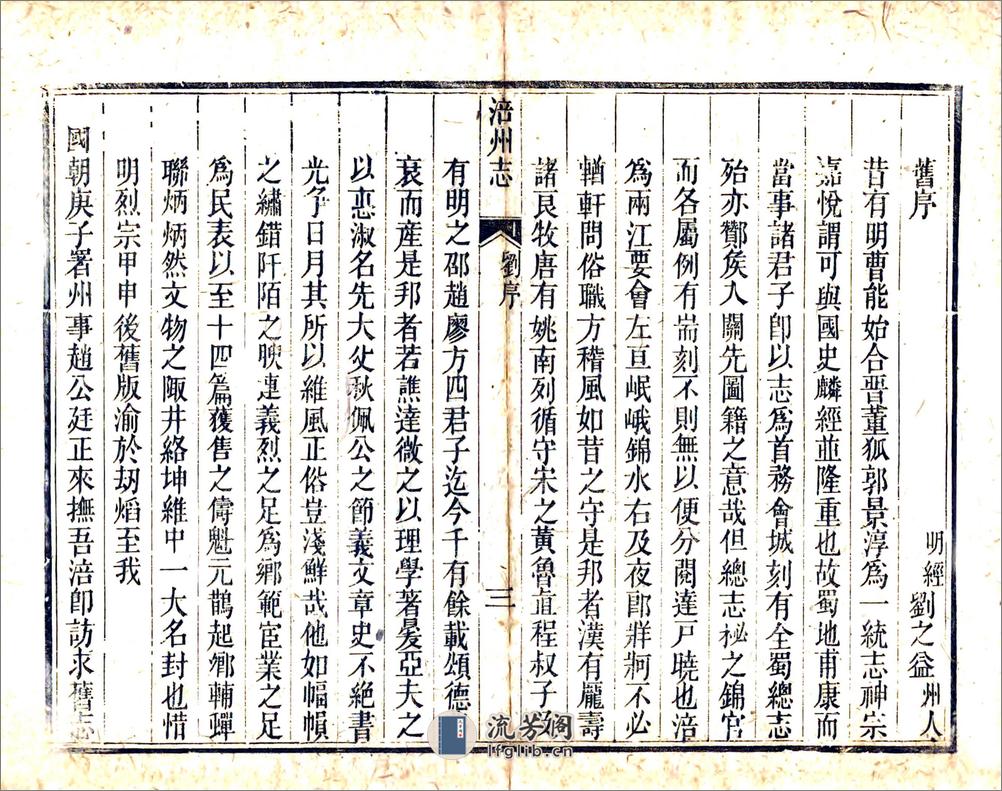 舊序
明經劉之益州人
昔有明曹能始合晉董狐郭景淳爲一統志神宗
嘉悅謂可與國史麟經並隆重也故蜀地甫康而
當事諸君子卽以志爲首務會城刻有全蜀總志
殆亦酇侯入關先圖籍之意哉但總志祕之錦官
而各屬例有耑刻不則無以便分閱達戸曉也涪
爲兩江要會左亘岷峨錦水右及夜郎牂牁不必
輶軒問俗職方稽風如昔之守是邦者漢有龐壽
諸良牧唐有姚南列循守宋之黃魯直程叔子
涪州志
劉序
三
有明之邵趙廖方四君子迄今千有餘載頌德
衰而産是邦者若譙達微之以理學著㬊亞夫之
以忠淑名先大父秋佩公之節義文章史不絶書
光爭日月其所以維風正俗豈淺鮮哉他如幅幀
之繡錯阡陌之映連義烈之足爲鄉範宦業之足
爲民表以至十四篇獲售之儔魁元鵲起鄉輔蟬
聯炳炳然文物之陬井絡坤維中一大名封也惜
明烈宗甲申後舊版渝於刼熖至我
國朝庚子署州事趙公廷正來撫吾涪卽訪求舊志
流芳阁
lfglib.cn